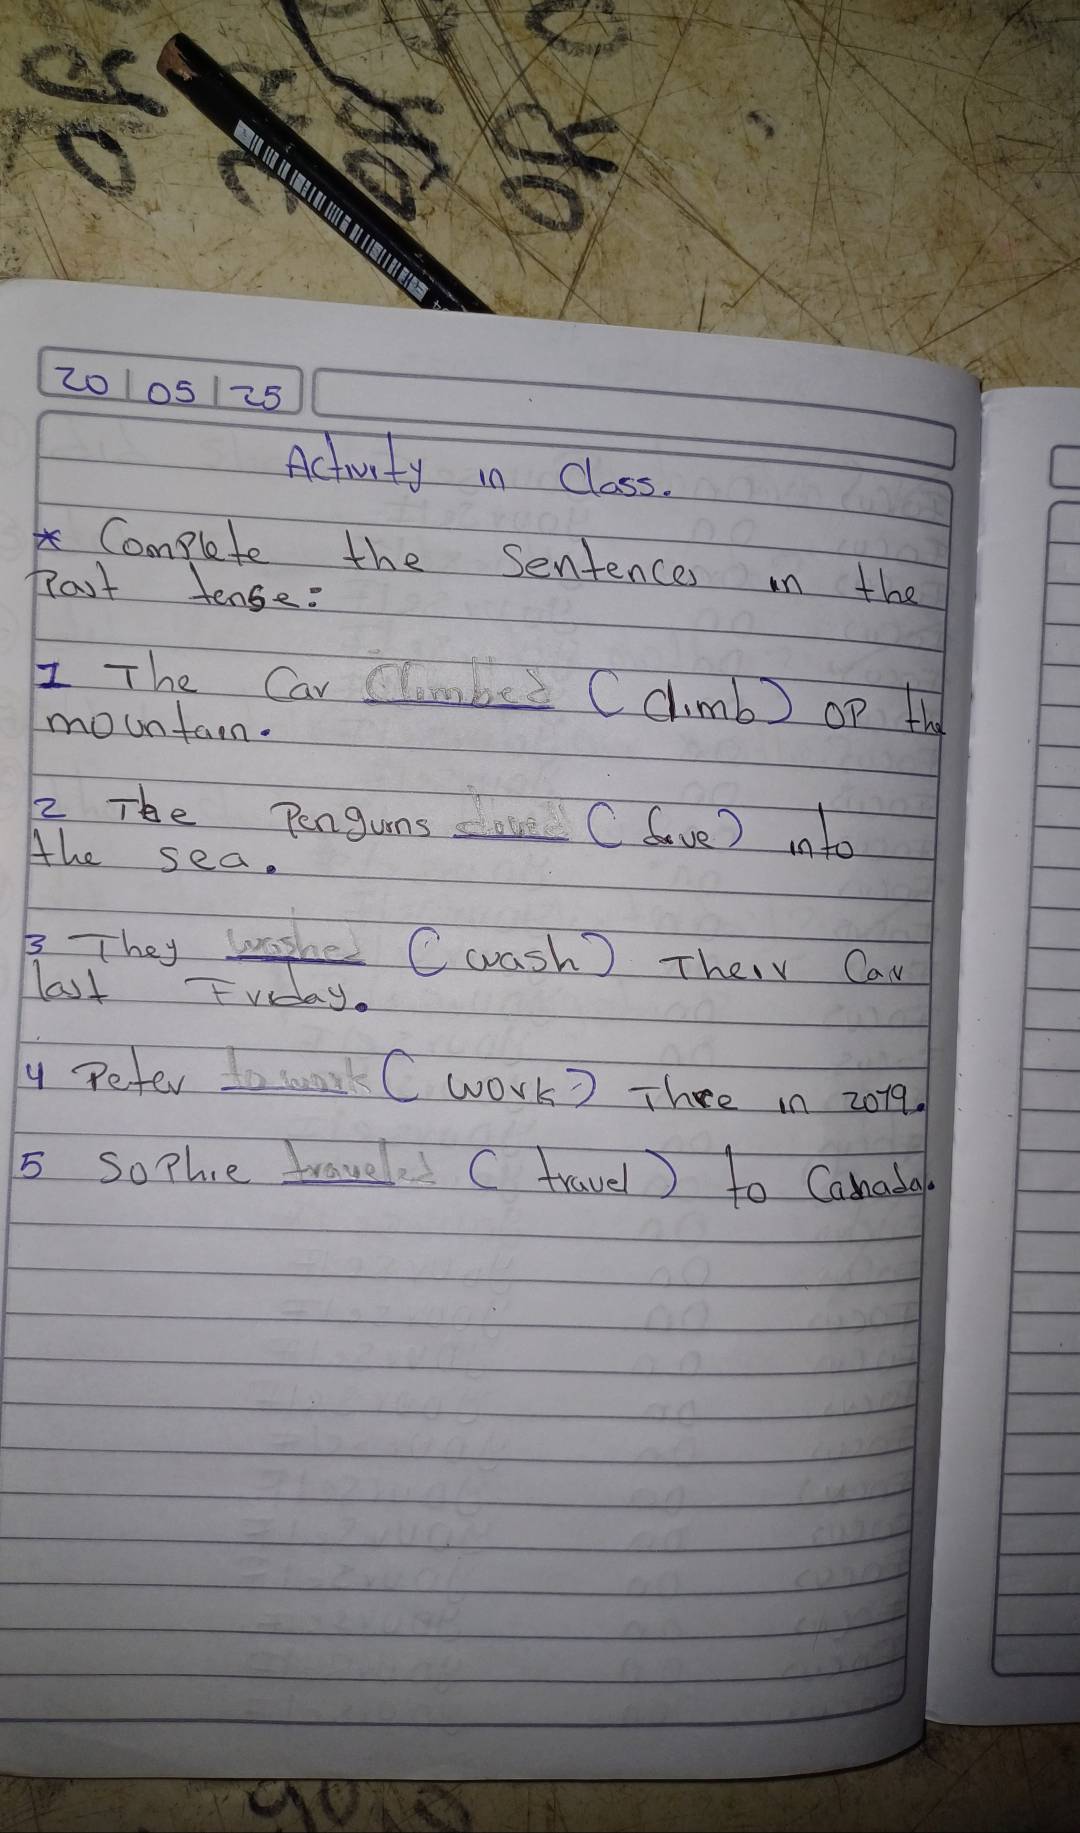 20/05/25
Activity in Class.
* Complete the sentences in the
Past tense:
1 The Car Climbed (climb) op the
mountain.
2 The Penguins doved (dove) into
the sea.
3 They washed (wash) Their Car
last Friday.
4 Peter to work (work) Thre in 2019.
5 Sophie traveled (travel) to Canada.